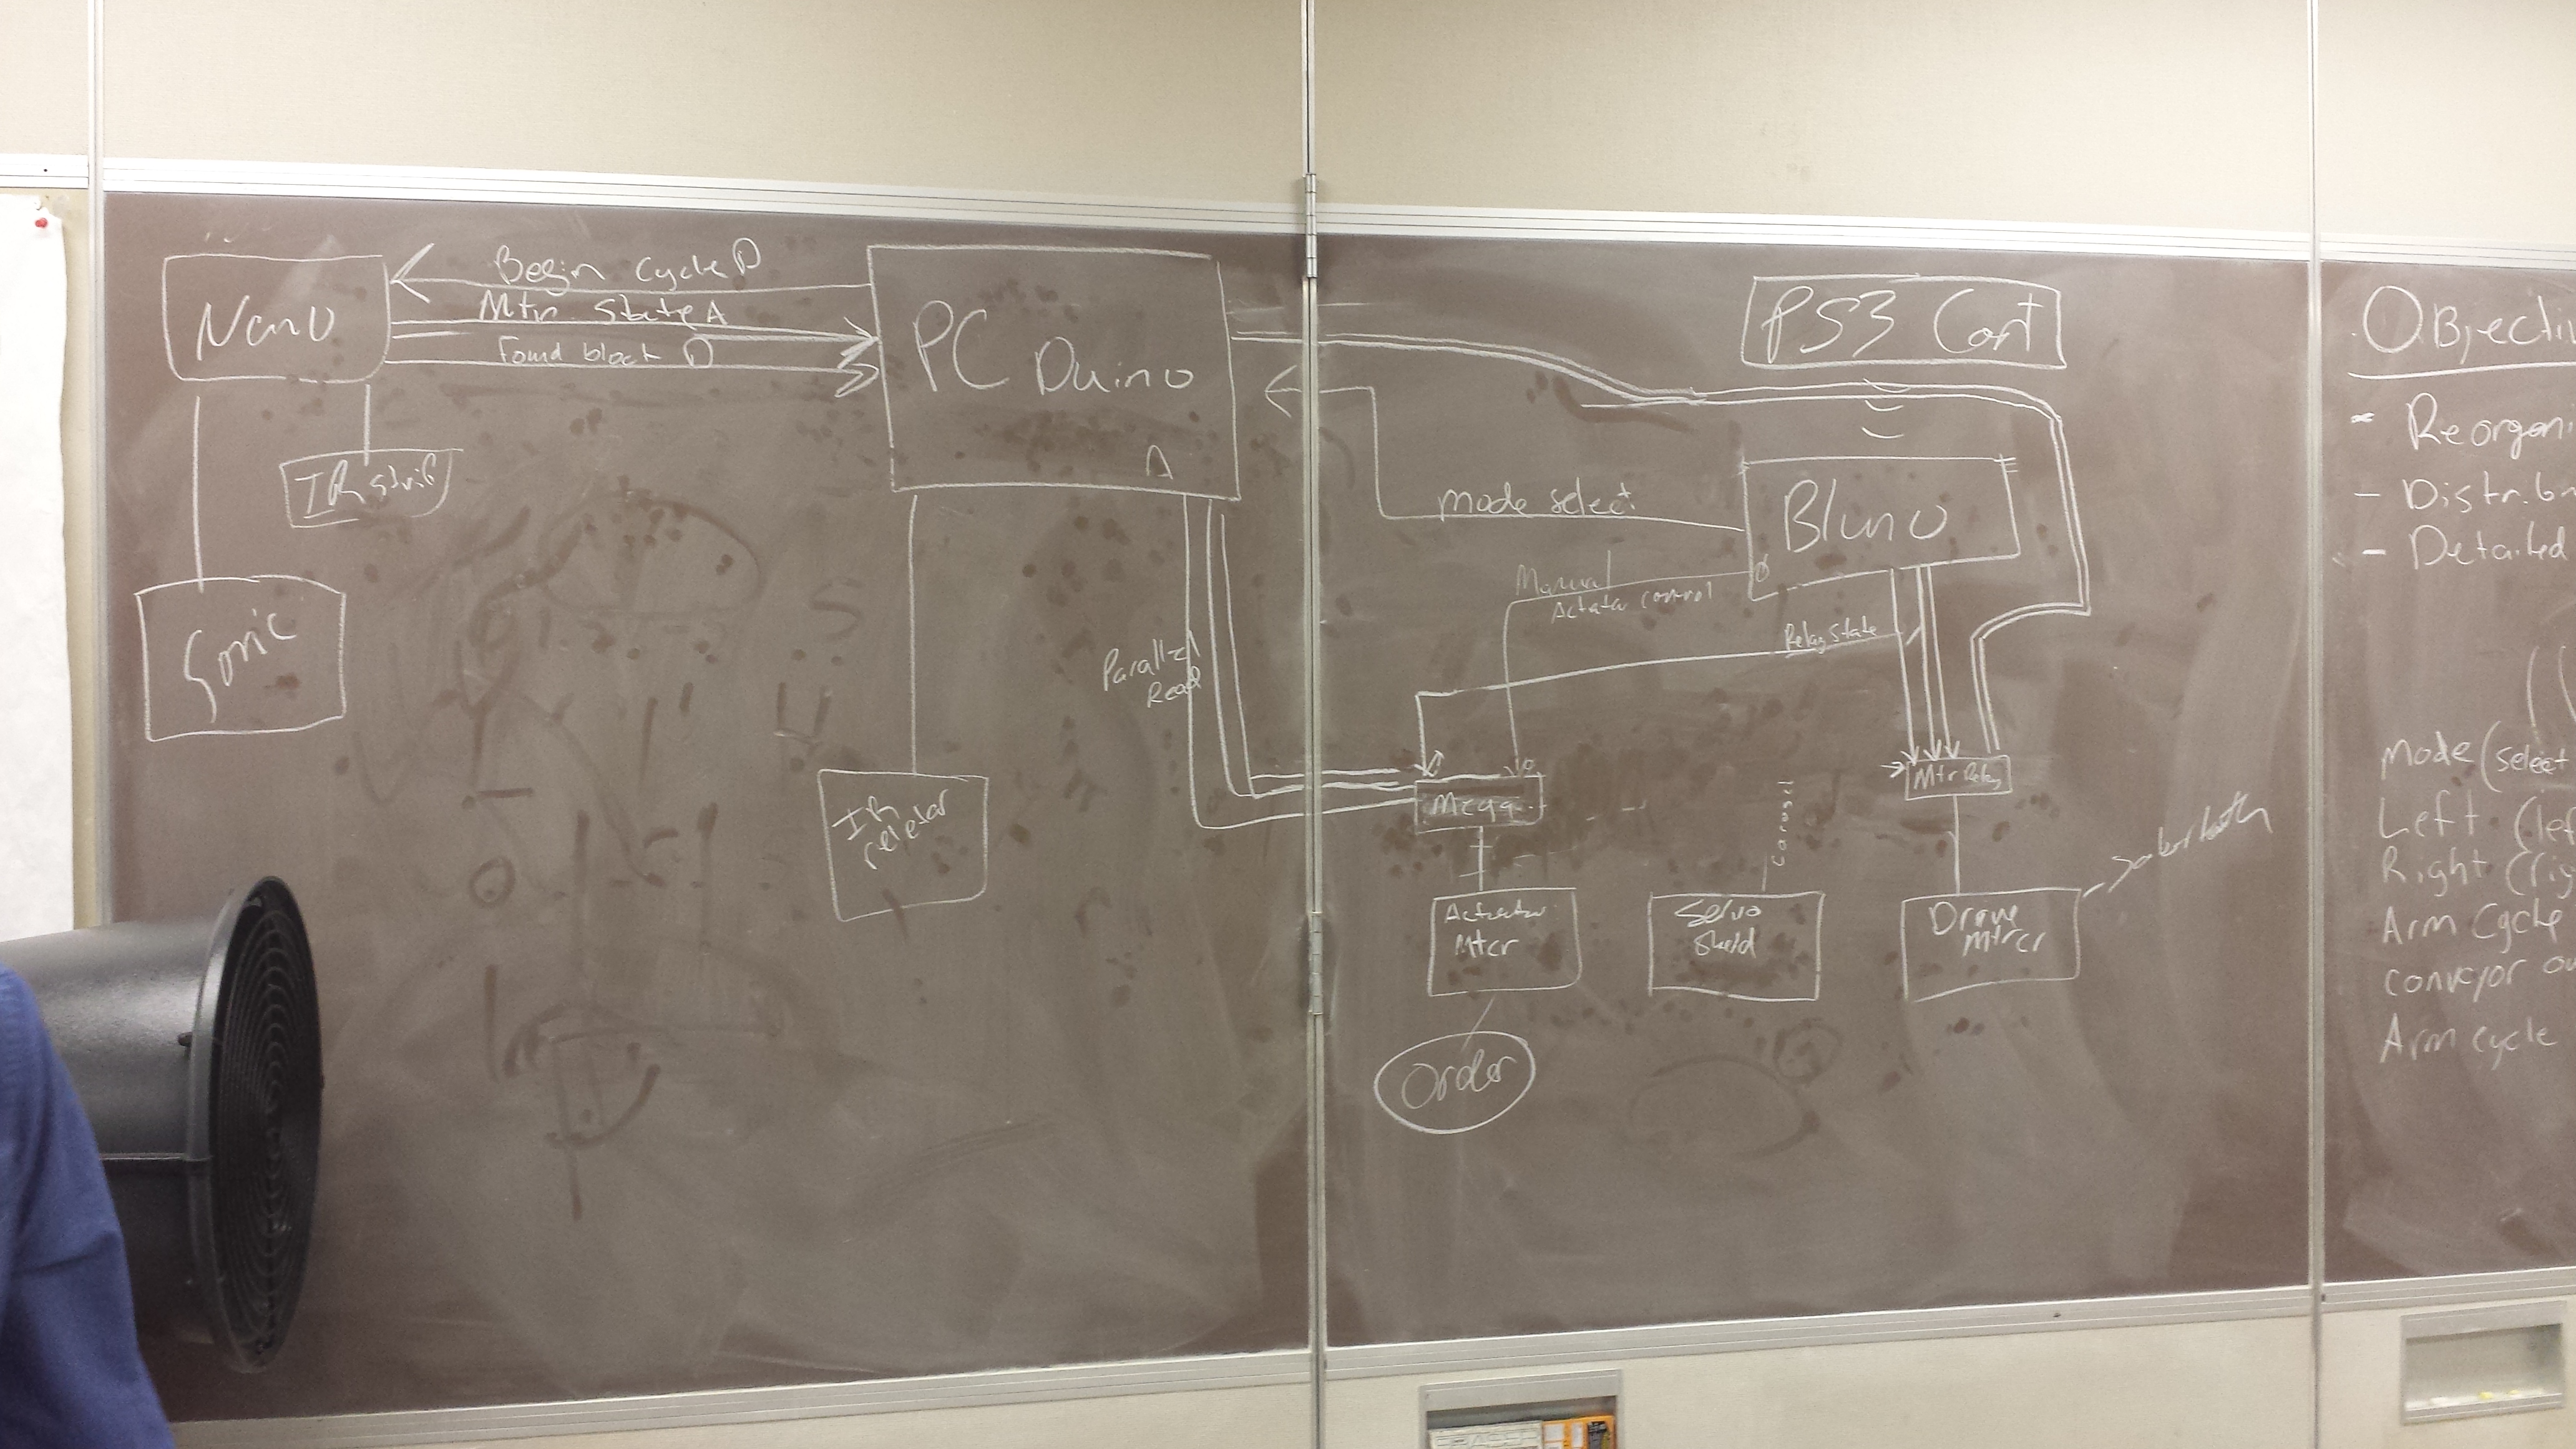 Nano
Begin Cycle D
Mtr. State A
Found block D
PC Duino
A
IR
Sonic
IR
Parallel
Read
PS3 Cont
Bluno
mode select
Manual
Actuator control
Relay State
Mega
Mtr Relay
Carousel
Actuator
Mtcr
Servo
Shield
Drive
Mtrcr
Order
Objecti
- Reorgani
- Distribu
- Detailed
Mode (select
Left (lef
Right (rig
Arm Cycle
conveyor ou
Arm cycle